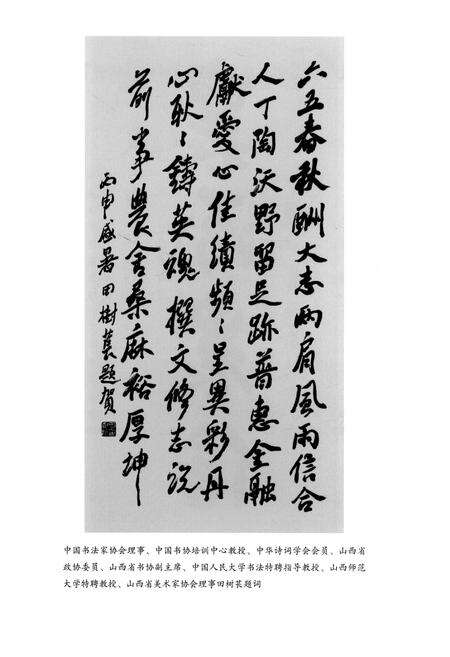 六五春秋酬大志两肩风雨信合
人丁陶沃野留足跡普惠金融
獻爱心佳绩频〻呈異彩丹
心耿〻鑄英魂撰文修志说
前事農舍桑麻裕厚坤
丙申盛暑田樹萇题贺
中国书法家协会理事、中国书协培训中心教授、中华诗词学会会员、山西省
政协委员、山西省书协副主席、中国人民大学书法特聘指导教授、山西师范
大学特聘教授、山西省美术家协会理事田树苌题词